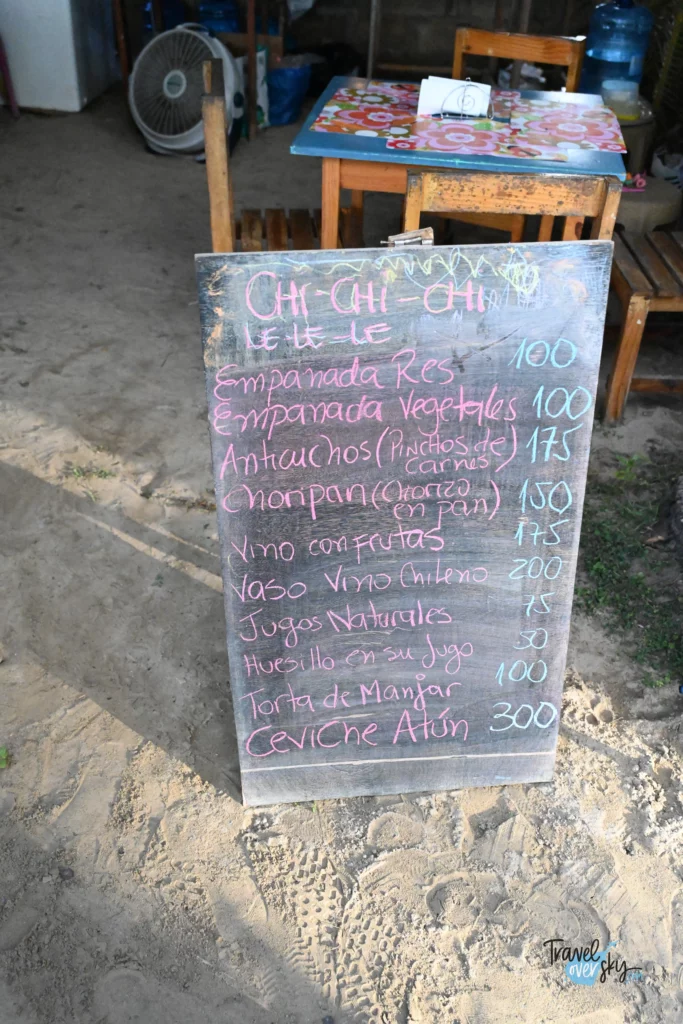 CHI-CHI-CHI
LE-LE-LE
Empanada Res 100
Empanada Vegetales 100
Anticuchos (Pinchos de carnes) 175
Choripan (Chorizo en pan) 150
Vino con frutas 175
Vaso Vino Chileno 200
Jugos Naturales 75
Huesillo en su Jugo 50
Torta de Manjar 100
Ceviche Atún 300
Travel
over sky